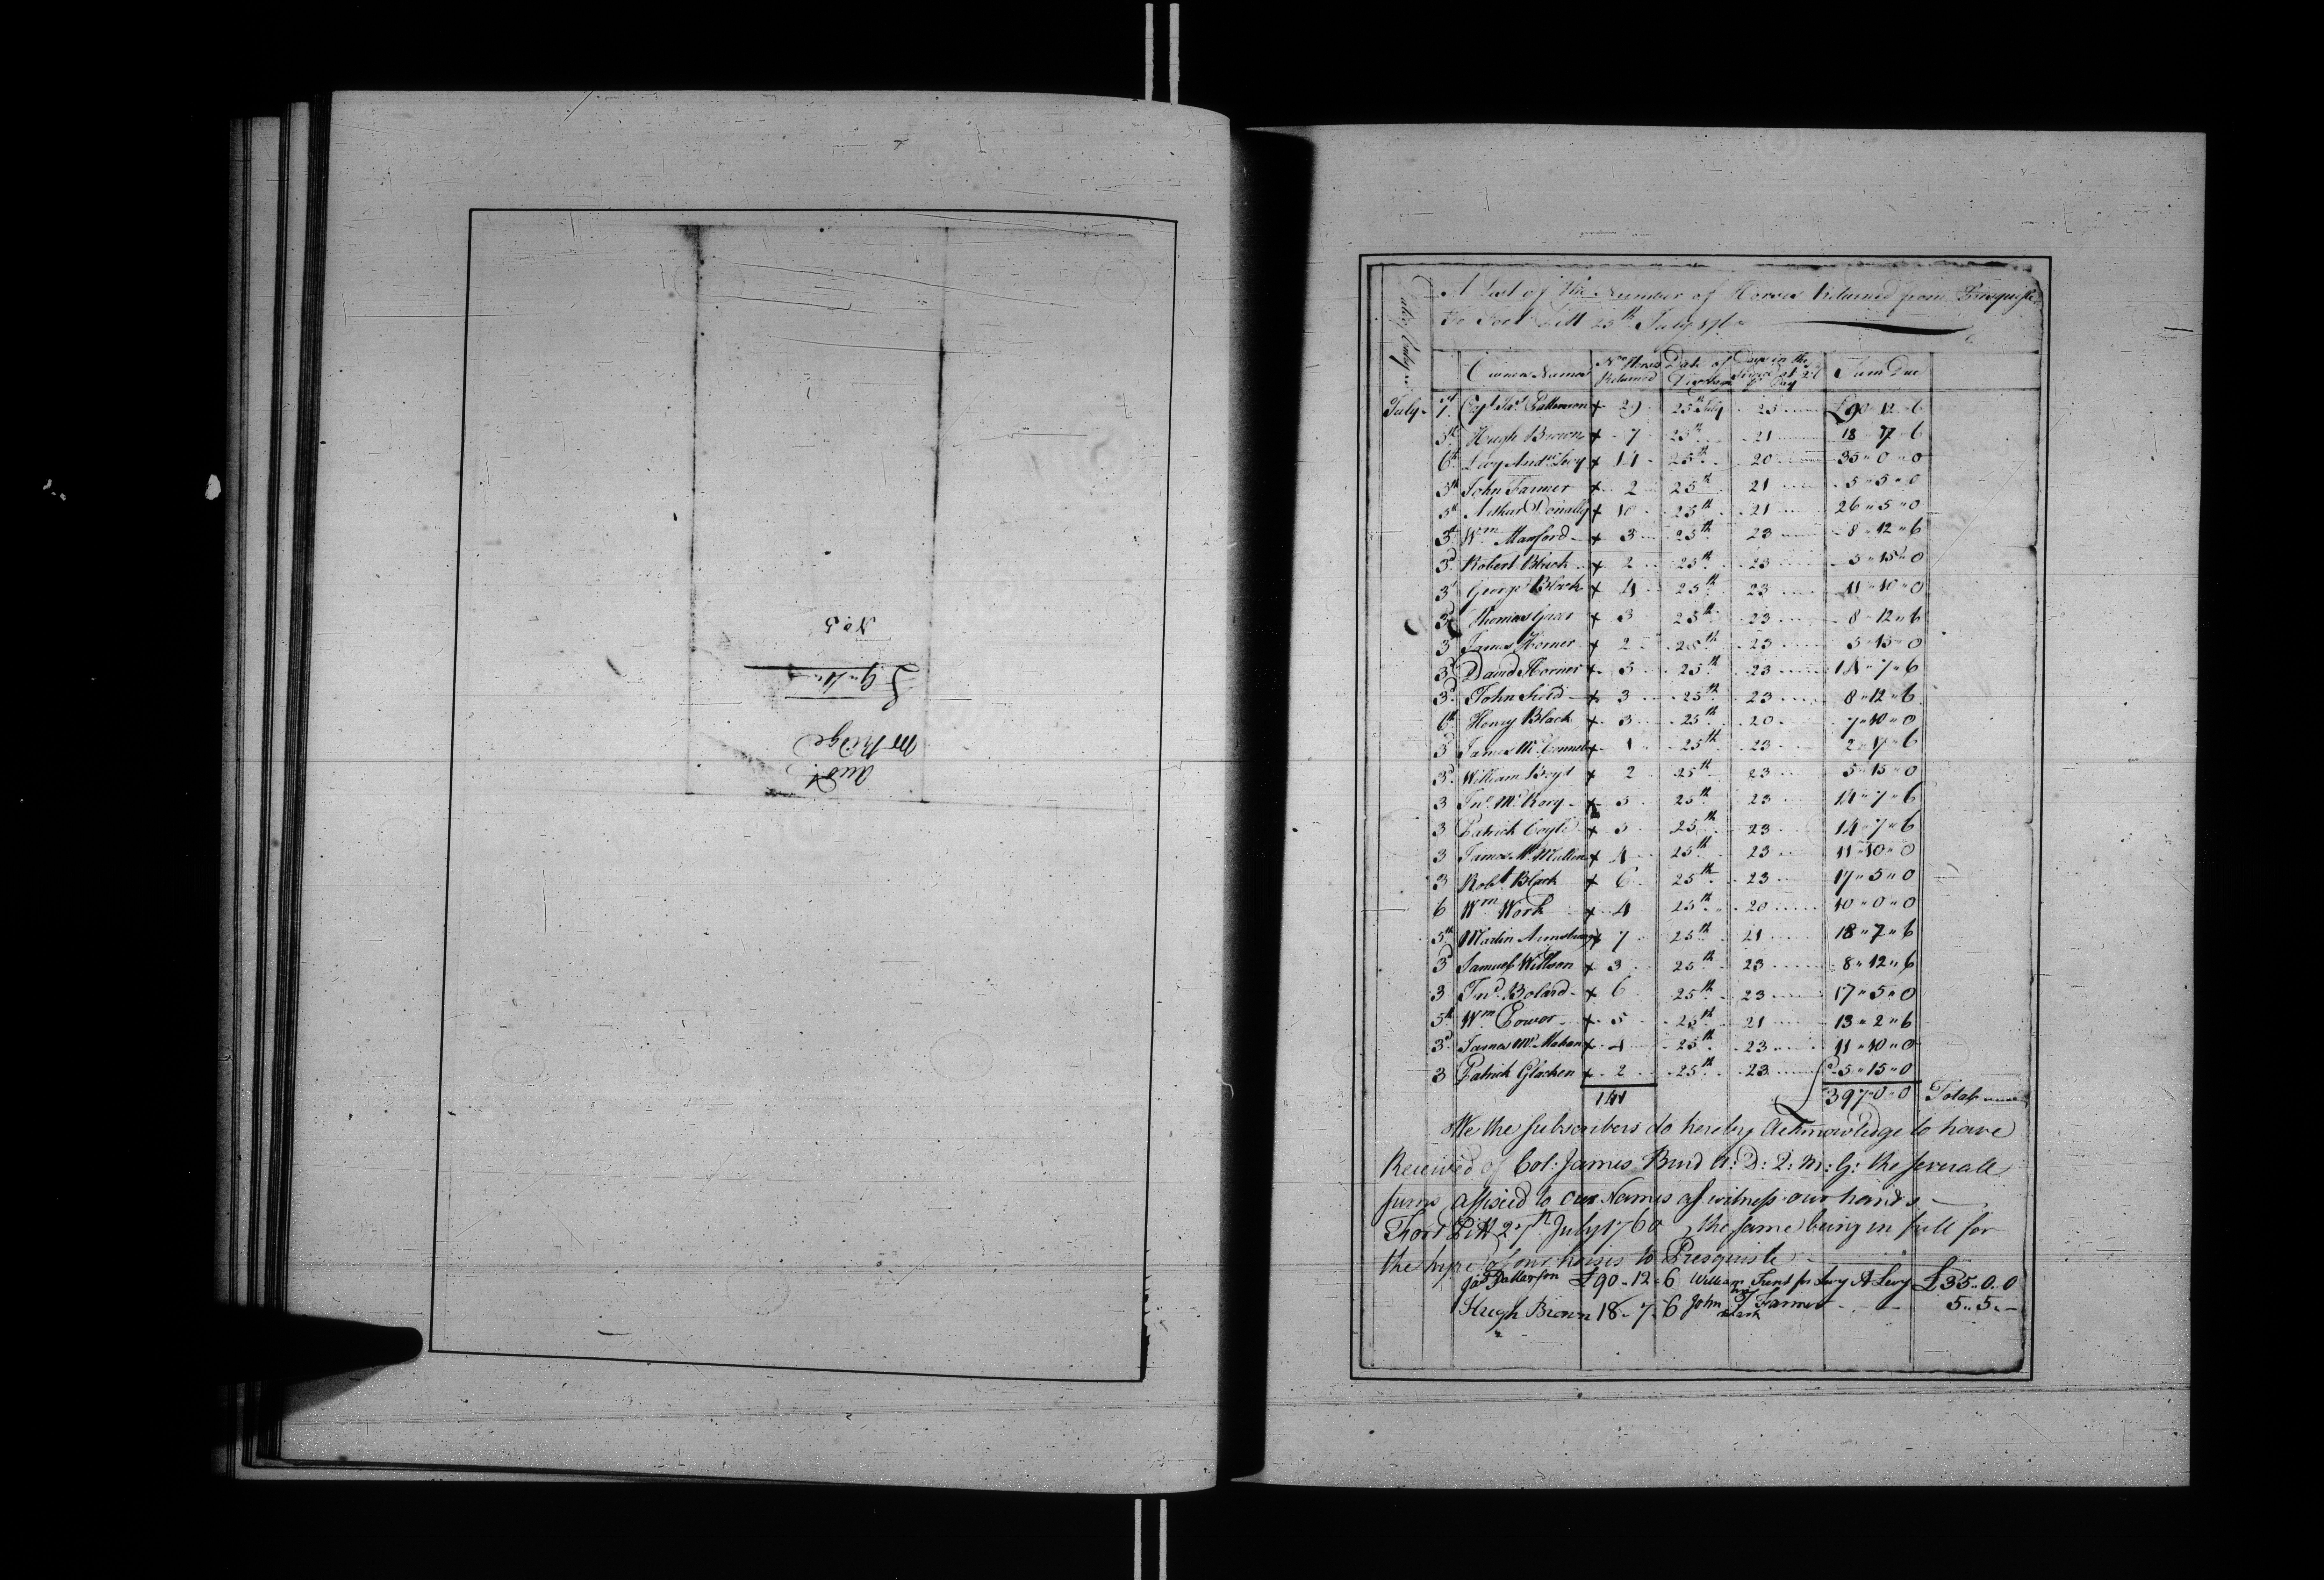 No. 5
Mr Ridge
A List of the Number of Horses Returned from Presquisle
To Fort Pitt 25th July 1760
Owners Names No. Horses Returned Date of Discharge Days in the Service at 2/6 Pr Day Sum Due
July 1st Capt Jas. Patterson + 29 25th July 25 £90 12 6
5th Hugh Brown + 7 25th 21 18 7 6
6th Levy Andw. Levy + 14 25th 20 35 " 0 " 0
5th John Farmer + 2 25th 21 5 " 5 " 0
5th Arthur Donally + 10 25th 21 26 " 5 " 0
3d Wm Maxford + 3 25th 23 8 " 12 " 6
3d Robert Black + 2 25th 23 5 " 15 " 0
3d George Black + 4 25th 23 11 " 10 " 0
3d Thomas + 3 25th 23 8 " 12 " 6
3 James Horner + 2 25th 23 5 " 15 " 0
3d David Horner + 5 25th 23 14 " 7 " 6
3d John Field + 3 25th 23 8 " 12 " 6
6th Henry Black + 3 25th 20 7 " 10 " 0
3d James Mc Connel + 1 25th 23 2 " 17 " 6
3d William Boyd + 2 25th 23 5 " 15 " 0
3 Jno. Mc Rory + 5 25th 23 14 " 7 " 6
3 Patrick Coyle + 5 25th 23 14 " 7 " 6
3 James Mc Mullen + 4 25th 23 11 " 10 " 0
3 Robt Black + 6 25th 23 17 " 5 " 0
6 Wm Work + 4 25th 20 10 " 0 " 0
5th Martin Armstrong + 7 25th 21 18 " 7 " 6
3d Samuel Willson + 3 25th 23 8 " 12 " 6
3 Jno. Bolard + 6 25th 23 17 " 5 " 0
5th Wm Power + 5 25th 21 13 " 2 " 6
3d James Mc Mahan + 4 25th 23 11 " 10 " 0
3 Patrick Glacken + 2 25th 23 5 " 15 " 0
141 397 " 0 " 0 Total
We the subscribers do hereby Acknowledge to have
Received of Col: James Burd A: D: Q: M: G: the severall
sums affixed to our Names as witness our hands
Fort Pitt 27th July 1760, the same being in full for
the hyre of our horses to Presquisle
Jas Patterson £90 - 12 - 6 William Trent for Levy A Levy £35 .. 0 .. 0
Hugh Brown 18 - 7 - 6 John his Mark Farmer 5 .. 5 .. -